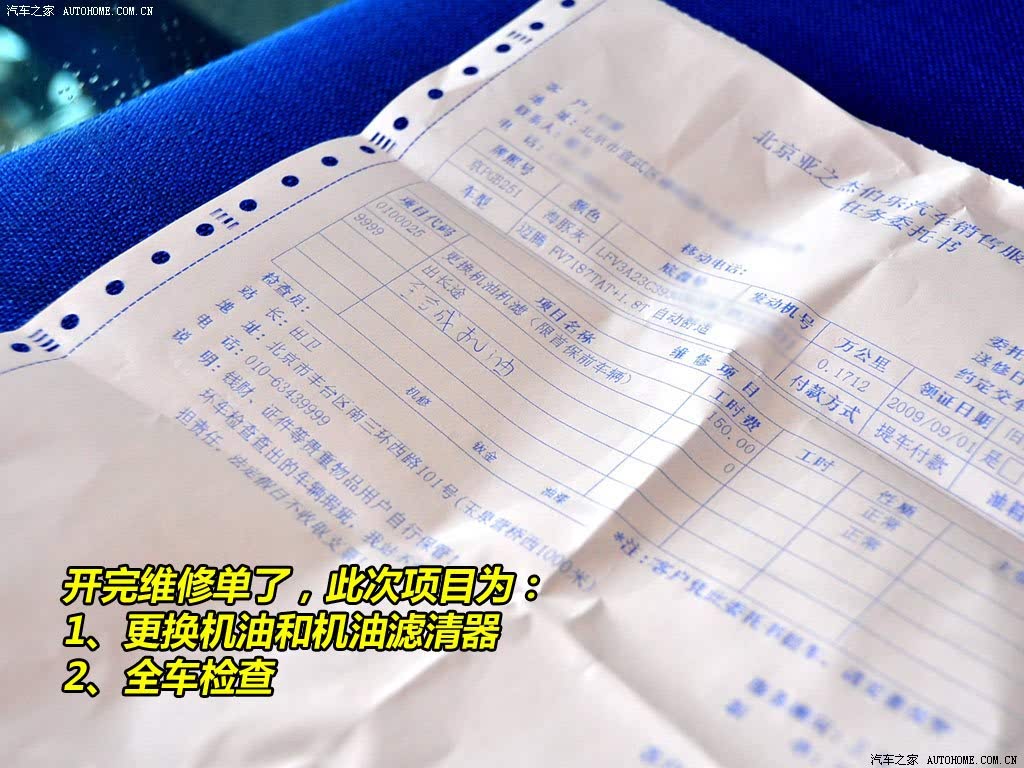 汽车之家 AUTOHOME.COM.CN
汽车之家 AUTOHOME.COM.CN
北京亚之杰伯乐汽车销售服
任务委托书
客 户:
地 址: 北京市宣武区
联系人:
电 话:
移动电话:
牌照号 颜色 底盘号 发动机号 万公里 领证日期
海豚灰 LFV3A23C29 0.1712 2009/09/01
车型 迈腾 FV7187TAT+1.8T 自动舒适 付款方式 提车付款 是
委托
送修日
约定交车
维 修 项 目
项目代码 项目名称 工时费 工时 性质
0100025 更换机油机滤(限首保前车辆) 150.00 正常
9999 出长途 0 正常
机修 钣金 油漆
检查员:
站 长: 田卫
地 址: 北京市丰台区南三环西路101号(玉泉营桥西1000米)
电 话: 010-63439999
说 明: 钱财、证件等贵重物品用户自行保管!
环车检查查出的车辆瑕疵,我站不
担责任。法定假日不收取支票
*注:客户凭此委托书提车,
开完维修单了,此次项目为:
1、更换机油和机油滤清器
2、全车检查
汽车之家 AUTOHOME.COM.CN